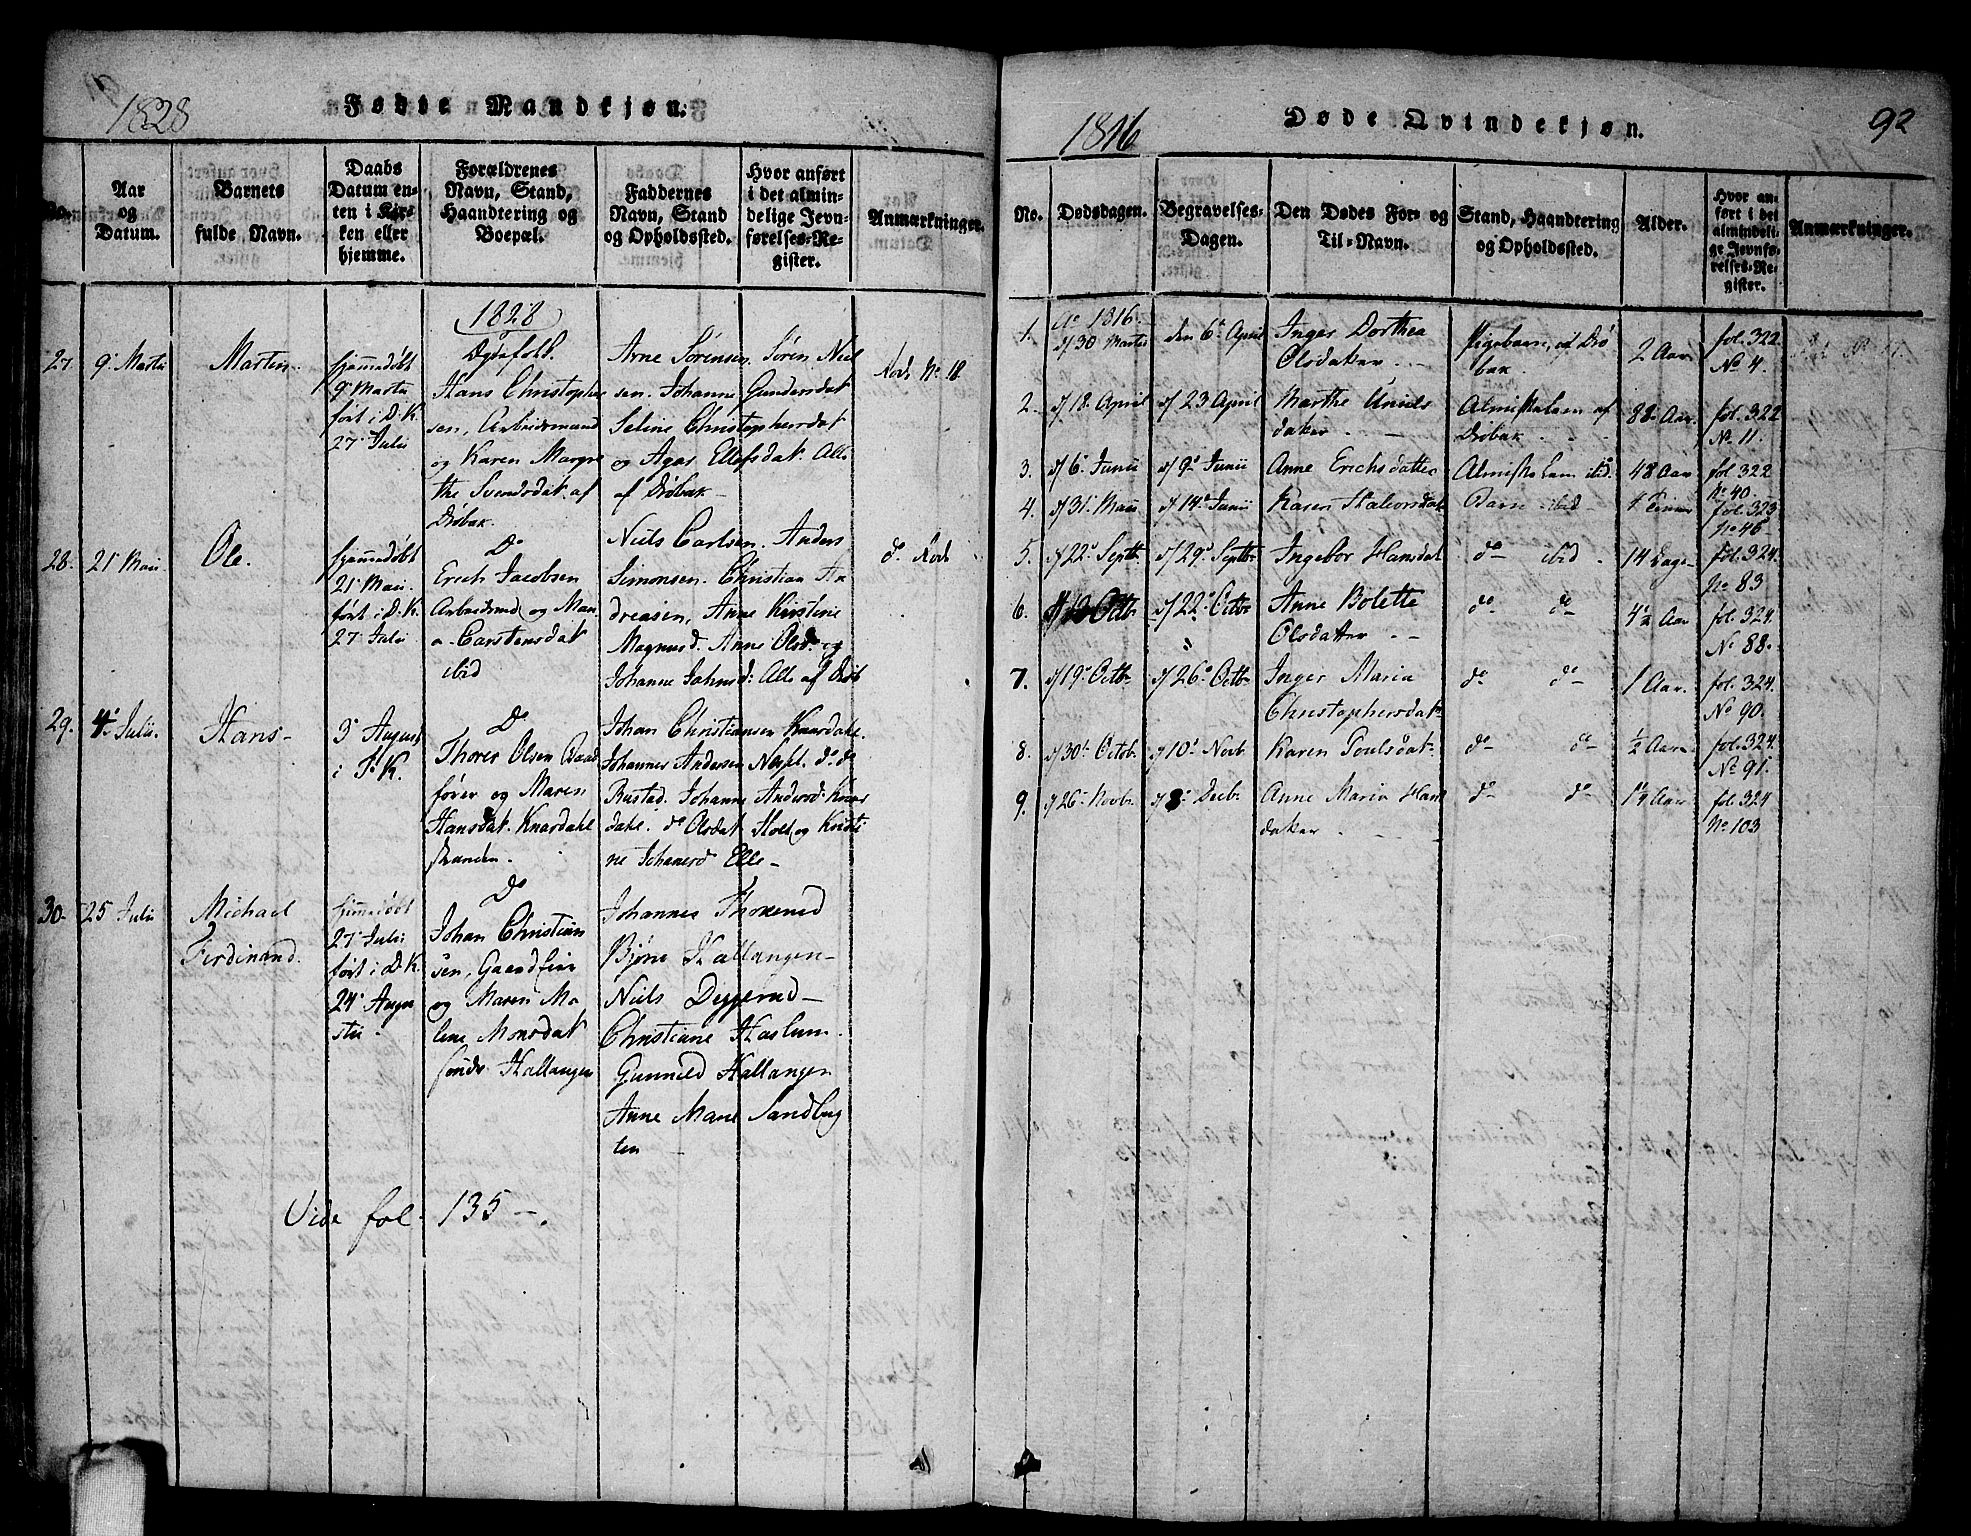 1828
Fødte Mandkjøn.
No.
Aar og Datum.
Barnets fulde Navn.
Daabs Datum enten i Kirken eller hjemme.
Forældrenes Navn, Stand, Haandtering og Boepæl.
Faddernes Navn, Stand og Opholdssted.
Hvor anført i det almindelige Jevnførelses-Register.
Anmærkninger.
27.
9. Martii
Marten.
hjemmedøbt
9. Martii
ført i D.K.
27 Julii
1828
Hans Christopher
sen, Arbeidsmand
og Karen Margre
the Svendsdat. af
Drøbak.
Arne Sørensen. Søren Niel
sen. Johanne Gundersdat
Seline Christophersdat
og Agar Ellefsdat. Alle
af Drøbak
No. 18
28.
21 Maii
Ole.
hjemmedøbt
21 Maii
ført i D.K.
27 Julii
Do
Erich Jacobsen
Arbeidsmd og Mari
a Carstensdat
ibid
Niels Carlsen. Anders
Simonsen. Christian An
dreasen, Anne Kirstine
Magnusd. Anne Olsd. og
Johanne Johnsd: Alle af Drøb
29.
4 Julii.
Hans
3 August
Do
Thorer Olsen
fører og Maren
Hansdat. Knardahl
stranden.
Johan Christiansen Knardahl.
Johannes Andersen
Rustad. Johanne Andersd. Knar
dahl. do Olsdat Holt og Kristi
ne Johanesd Elle
30.
25 Julii
Michael
Ferdinand.
hjemmedøbt
27 Julii
ført i D.K.
24 Augu
stii
Do
Johan Christian
sen, Gaardfører
og Maren Ma
lene Monsdat
søndre Hallangen
Johannes Thorenrud
Bjørn Hallangen
Niels Deggerud
Christiane Haslum.
Gunnild Hallangen
Anne Marie Sandbug
ten
Vide fol. 135
1816
Døde Qvindekjøn.
92
No.
Dødsdagen.
Begravelses-Dagen.
Den Dødes For- og Til-Navn.
Stand, Haandtering og Opholdssted.
Alder.
Hvor anført i det almindelige Jevnførelses-Register.
Anmærkninger.
1.
Ao 1816.
d/30 Martii
den 6. April
Inger Dorthea
Olsdatter
Pigebarn, af Drø
bak.
2 Aar
fol. 322
No 4.
2.
d/18. April
d/23 April
Marthe
datter
Almisselem af
Drøbak
88 Aar.
fol. 322
No 11.
3.
d/6. Junii
d/9. Junii
Anne Erichsdatter
Almisse Lem ibid.
48 Aar
fol. 322
No 40
4.
d/31. Maii
d/14. Junii
Karen Halvorsdat
Barn ibid
fol. 323
No 46
5.
d/22. Septbr.
d/29. Septbr
Ingebor Hansdat
do ibid
14 Dage
fol. 324.
No 83
6.
Octb.
d/22. Octbr
Anne Bolette
Olsdatter
do do
4½ Aar
fol. 324.
No 88.
7.
d/19. Octbr
d/26. Octbr
Inger Maria
Christophersdat
do do
1 Aar.
fol. 324.
No 90.
8.
d/30. Octob.
d/10. Novb.
Karen Poulsdat
do do
½ Aar
fol. 324.
No 91.
9.
d/26. Novb.
d/8. Decb.
Anne Maria Hans
datter
do do
1¼ Aar
fol. 324
No 103